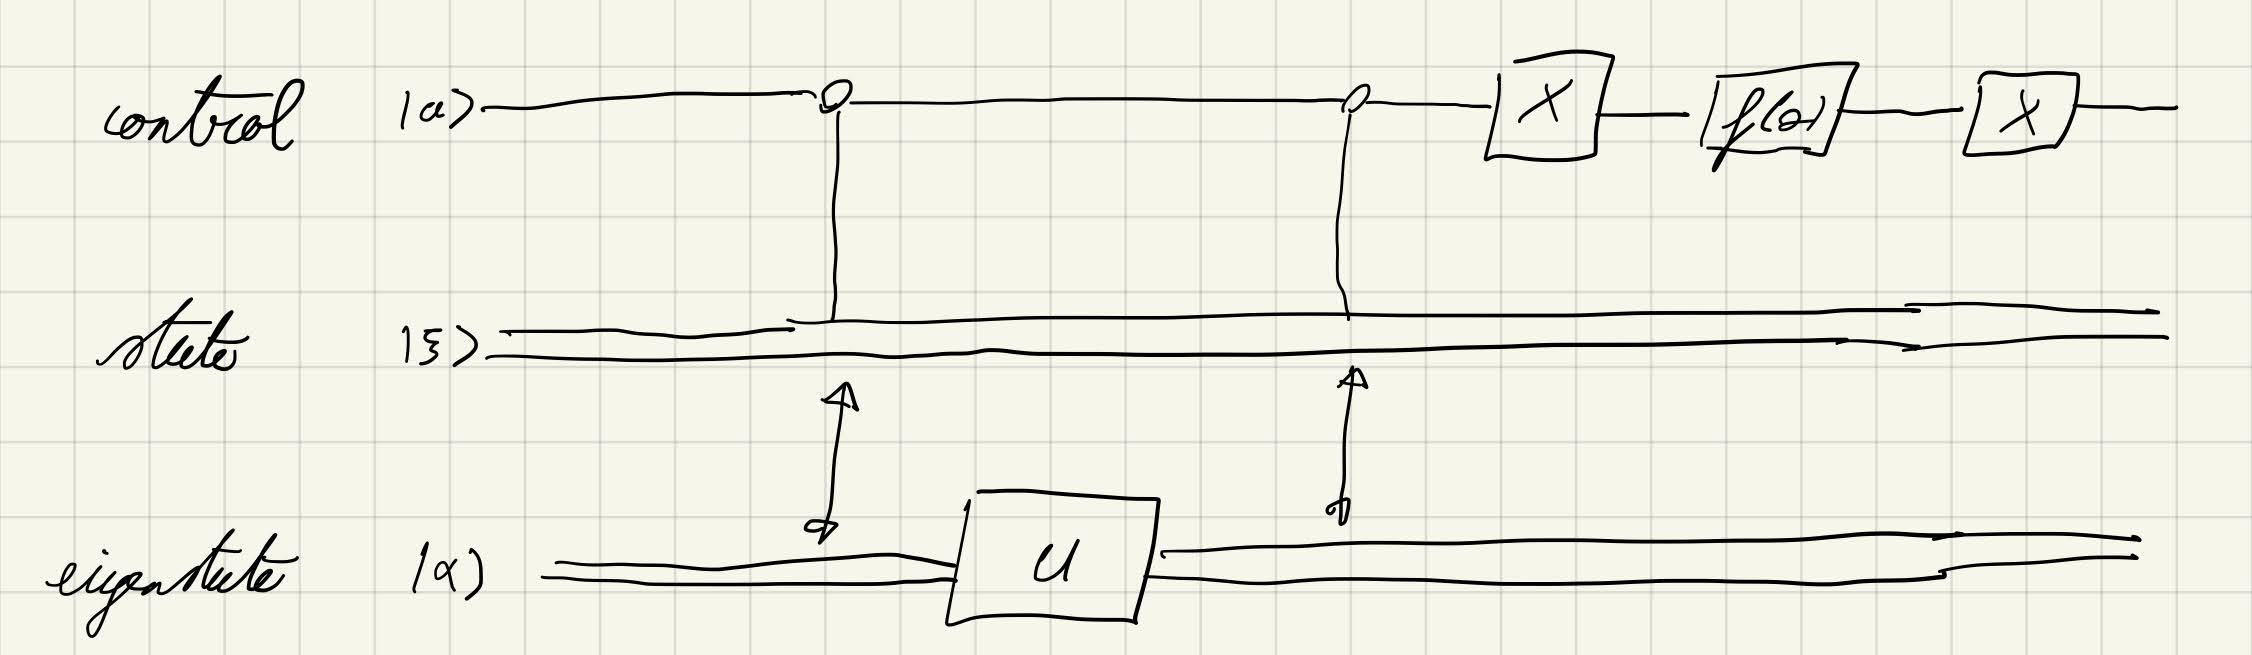 control |a⟩ X f(θ) X
state |ξ⟩
eigenstate |α⟩ U